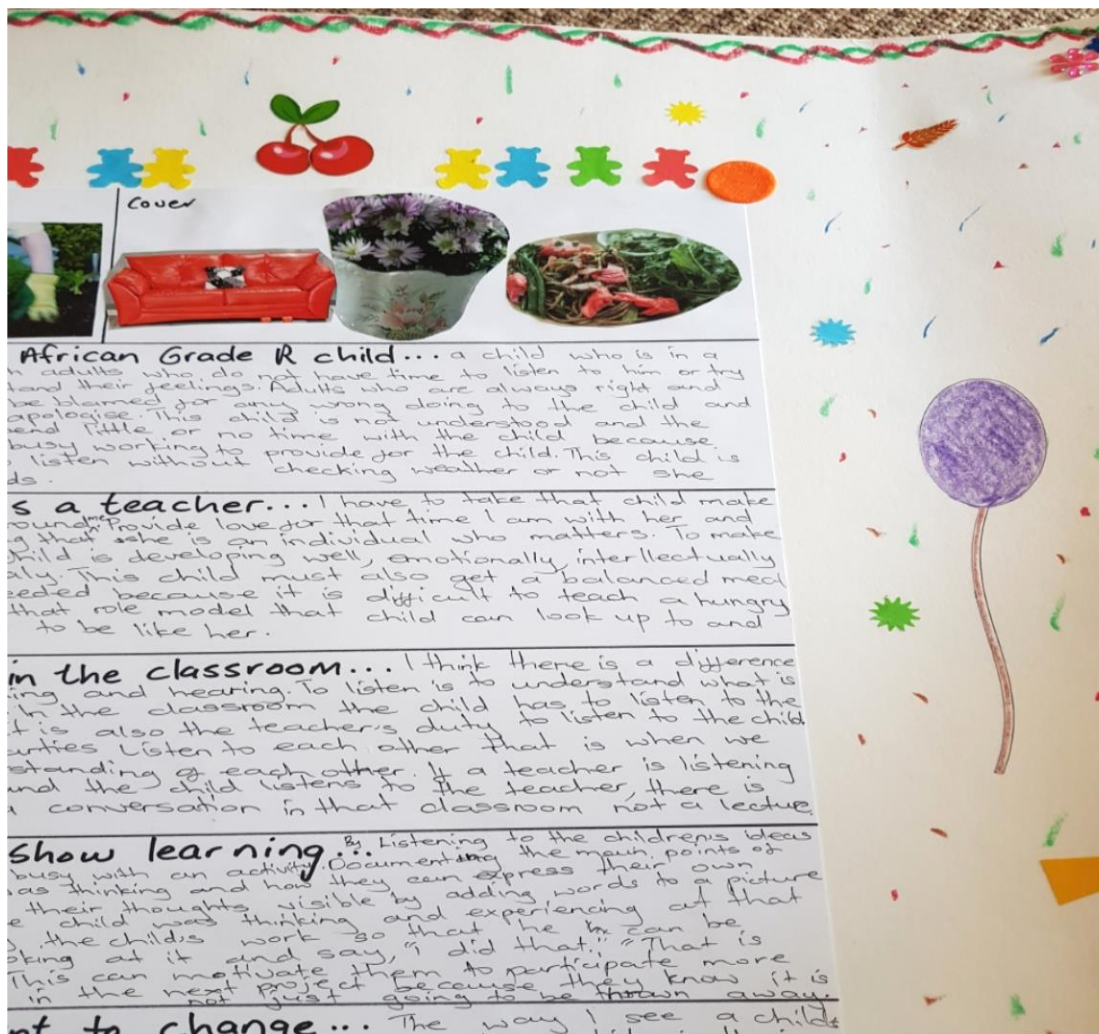 Cover
African Grade R child... a child who is in a
adults who do not have time to listen to him or try
and their feelings. Adults who are always right and
be blamed for any wrong doing to the child and
apologise. This child is not understood and the
end little or no time with the child because
busy working to provide for the child. This child is
listen without checking weather or not she
ds.
s a teacher... I have to take that child make
ound me Provide love for that time I am with her and
g that she is an individual who matters. To make
hild is developing well, emotionally, interllectually
aly. This child must also get a balanced meal
eeded because it is difficult to teach a hungry
that role model that child can look up to and
to be like her.
in the classroom... I think there is a difference
ing and hearing. To listen is to understand what is
In the classroom the child has to listen to the
t is also the teacher's duty to listen to the child
arties Listen to each other that is when we
standing of each other. If a teacher is listening
and the child listens to the teacher, there is
a conversation in that classroom not a lecture
show learning... By Listening to the children's ideas
busy with an activity. Documenting the main points of
as thinking and how they can express their own
their thoughts visible by adding words to a picture
e child was thinking and experiencing at that
the child's work so that he can be
oking at it and say, "I did that." "That is
This can motivate them to participate more
in the next project because they know it is
not just going to be thrown away.
nt to change... The way I see a child